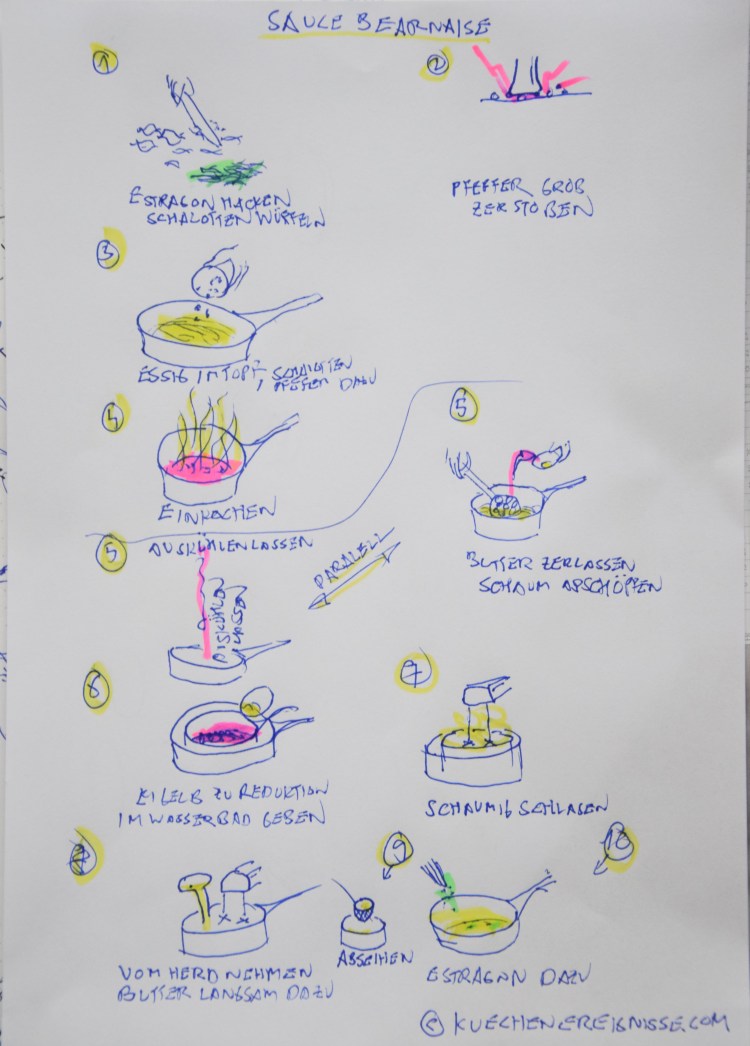 SAUCE BEARNAISE
1
ESTRAGON HACKEN
SCHALOTTEN WÜRFELN
2
PFEFFER GROB
ZERSTOßEN
3
ESSIG IM TOPF, SCHALOTTEN
PFEFFER DAZU
4
EINKOCHEN
5
AUSKÜHLEN LASSEN
AUSKÜHLEN
LASSEN
PARALELL
5
BUTTER ZERLASSEN
SCHAUM ABSCHÖPFEN
6
EIGELB ZU REDUKTION
IM WASSERBAD GEBEN
7
SCHAUMIG SCHLAGEN
VOM HERD NEHMEN
BUTTER LANGSAM DAZU
9
ABSEIHEN
10
ESTRAGON DAZU
© KUECHENEREIGNISSE.COM